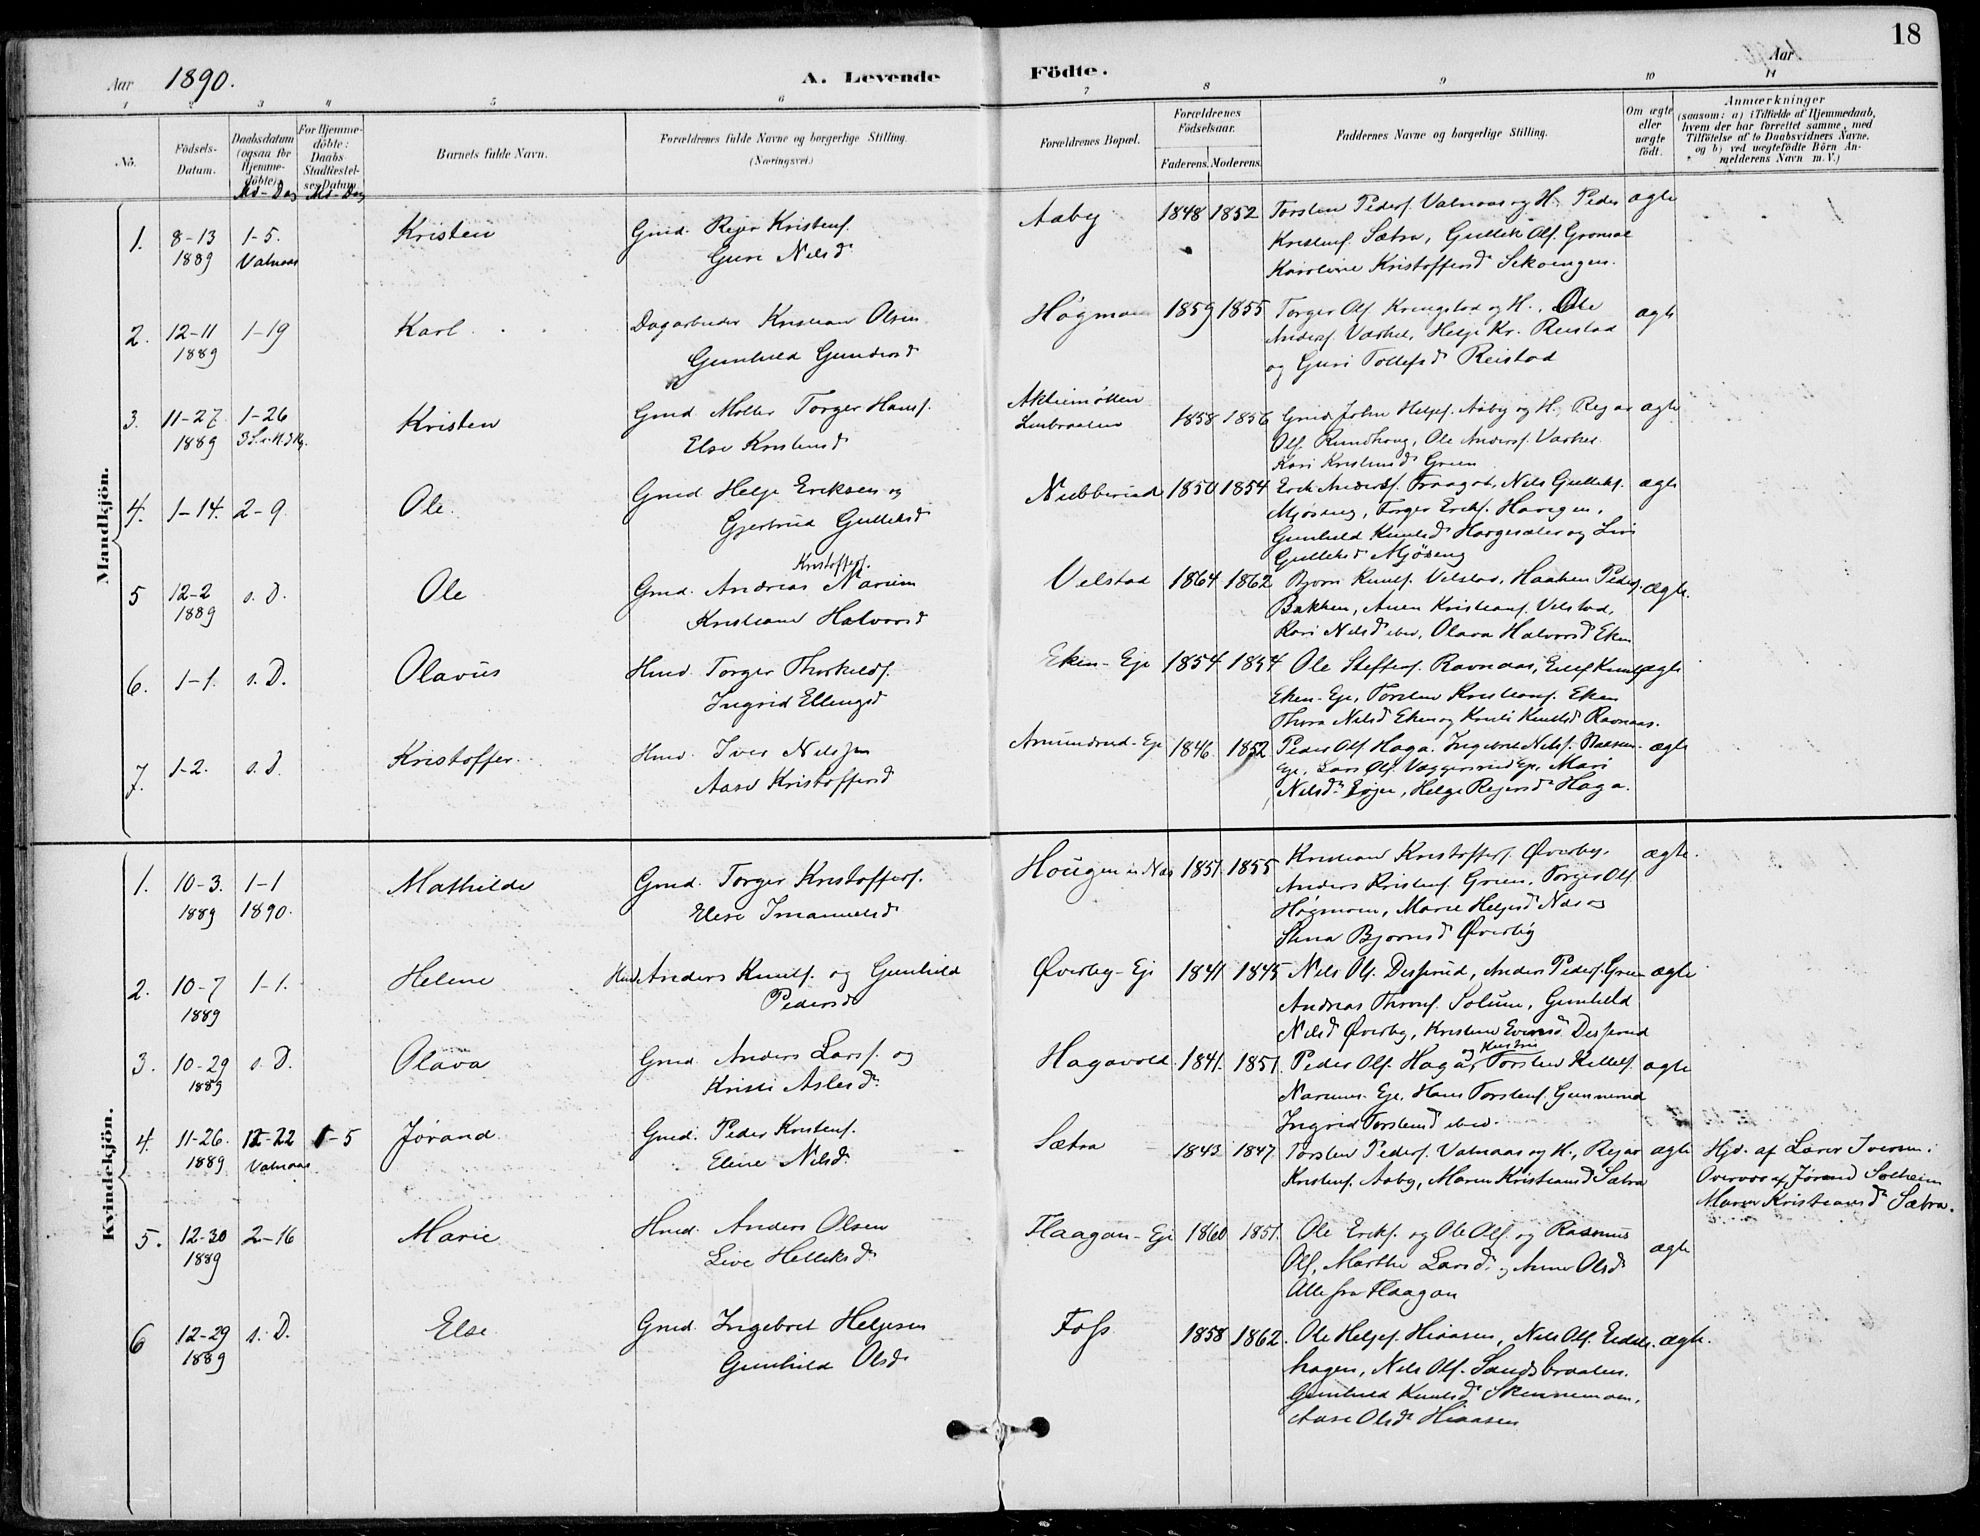 18
Aar 1890. A. Levende Födte. Aar
1 2 3 4 5 6 7 8 9 10 11
No.
Födsels-Datum.
Daabsdatum (ogsaa för Hjemme-döbte).
Md - Dag
For Hjemme-döbte: Daabs Stadfæstel-ses Datum.
Md - Dag
Barnets fulde Navn.
Forældrenes fulde Navne og borgerlige Stilling.
(Næringsvei.)
Forældrenes Bopæl.
Forældrenes Födselsaar.
Faderens. Moderens.
Faddernes Navne og borgerlige Stilling.
Om ægte eller uægte födt.
Anmærkninger
(saasom: a) i Tilfælde af Hjemmedaab,
hvem der har forrettet samme, med
Tilföielse af to Daabsvidners Navne,
og b) ved uægtefödte Börn An-
melderens Navn m. V.)
Mandkjön.
1. 8-13 1-5. Kristen Gmd. Rejer Kristens. Aaby 1848 1852 Torsten Peders. Valnaas og H. Peder ægte
1889 Valnaas Guri Nelsd. Kristens. Sætra, Gullik Ols.
Karoline Kristoffersd.
2. 12-11 1-19 Karl Dagarbeider Kristian Olsen Høgmoen 1859 1855 Torger Ols. Krengstad og H., Ole ægte
1889 Gunhild Gundersd. Anders. Værket, Helge Kr. Reistad
og Guri Tollefsd. Reistad
3. 11-27 1-26 Kristen Gmd. Møller Torger Hans. Aktiemøllen 1858 1856 Gmd. John Helges. Aaby og H., Rejar ægte
1889 Else Kristensd. Ols. Rundhoug, Ole Anders. Værket
Kari Kristensd. Green
4. 1-14. 2-9. Ole. Gmd Helge Eriksen og Nubberud 1850 1854 Erik Anders. Traagot, Nils Gulliks. ægte
Gjertrud Gulliksd. Mjøseng, Torger Eriks. Haugen,
Gunhild Knutsd. og Livi
Gulliksd. Mjøseng
Kristoffers.
5 12-2 s. D. Ole Gmd. Andreas Narum Velstad 1864 1862 Bjørn Knuts. Velstad, Haaken Peders. ægte.
1889 Kristiane Halvorsd Bakken, Anen Kristians. Velstad,
Kari Nelsd. ibid, Olava Halvorsd. Eken
6. 1-1. s. D. Olavus Hmd Torger Thorkilds. Eken-Eje 1854 1854 Ole Steffens. Ravnaas, Knuts. ægte
Ingrid Ellingsd Eken-Eje, Torsten Kristians. Eken
Thora Nilsd. Eken og Kristi Knutsd. Ravnaas.
7. 1-2. s. D. Kristoffer Hmd. Iver Nilssen Amundrud-Eje 1846 1852 Peder Ols. Haga. Ingebret Nils. ægte
Aase Kristoffersd Eje, Lars Ols. Eje, Mari
Nelsd. Helge Rejersd. Haga.
Kvindekjön.
1. 10-3. 1-1 Mathilde Gmd. Torger Kristoffers. Hougen i Næs 1851 1855 Kristian Kristoffers. Øverby, ægte.
1889 1890. Elise Imanuelsd Anders Kristens. Green, Torger Ols.
Høgmoen, Marie Helgesd. Næs og
Stina Bjørnsd. Øverby
2. 10-7 1-1. Helene Hmd Anders Knuts. og Gunhild Øverby-Eje 1841 1845 Nels Ols. Desserud, Anders Peders. Green ægte
1889 Pedersd Andreas Solum, Gunhild
Nelsd. Øverby, Kristine Evensd. Desserud
3. 10-29 s. D. Olava Gmd. Anders Lars. og Hagavold 1841. 1851. Peder Ols. Haga, og Hustru Torsten Kittels. ægte
1889 Kristi Aslesd. Narums-Eje, Hans Torstens. Gunnerud
Ingrid Torstensd. ibid.
4. 11-26. 12-22 1-5 Jørand Gmd. Peder Kristens. Sætra 1843 1847 Torsten Peders. Valnaas og H., Rejar ægte Hjd. af Lærer Iversen
1889 Valnaas Eline Nilsd. Kristens. Aaby, Maren Kristiansd. Sætra Overvær af Jørand Solheim
Maren Kristiansd. Sætra.
5. 12-30 2-16 Marie Hmd. Anders Olsen Flaagan-Eje 1860 1851. Ole Eriks. og Ole Ols. og Rasmus ægte
1889 Live Helliksd. Ols, Marthe Larsd. og Anne Olsd.
Alle fra Flaagan
6 12-29 s. D. Else Gmd. Ingebret Helgesen Foss 1858 1862. Ole Helges. Hiaasen, Nels Ols. ægte.
1889 Gunhild Olsd. hagen, Nels Ols. Sandsbraaten,
Gunhild Knutsd. Skinnemoen,
Aase Olsd. Hiaasen